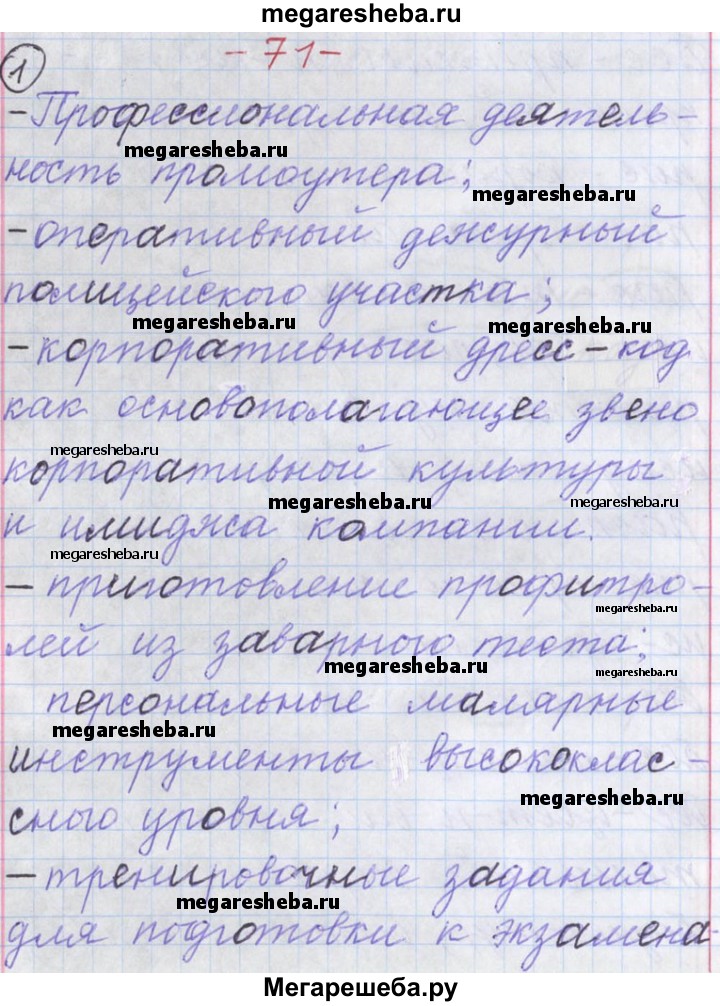 megaresheba.ru
- 71 -
1
- Профессиональная деятель-
megaresheba.ru
ность промоутера;
megaresheba.ru
- оперативный дежурный
полицейского участка;
megaresheba.ru
megaresheba.ru
- корпоративный дресс - код
как основополагающее звено
megaresheba.ru
корпоративной культуры
megaresheba.ru
megaresheba.ru
и имиджа компании.
megaresheba.ru
- приготовление профитро-
megaresheba.ru
лей из заварного теста;
megaresheba.ru
megaresheba.ru
персональные малярные
megaresheba.ru
инструменты высококлас-
megaresheba.ru
сного уровня;
- тренировочные задания
megaresheba.ru
для подготовки к экзамена-
Мегарешеба.ру